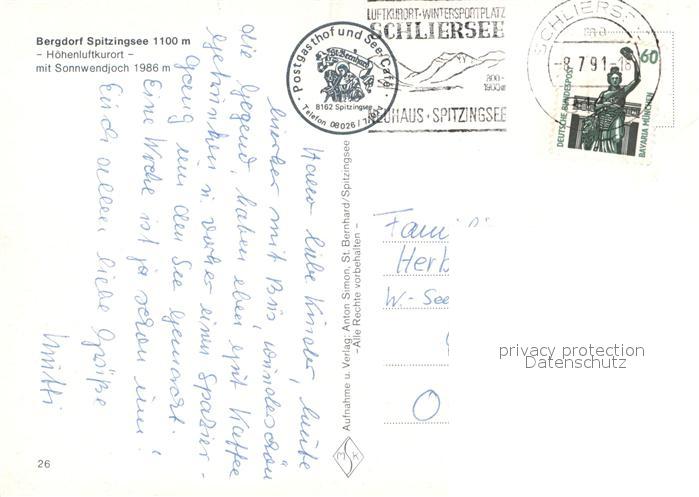 Bergdorf Spitzingsee 1100 m
– Höhenluftkurort –
mit Sonnwendjoch 1986 m
Postgasthof und See-Café
St. Bernhard
8162 Spitzingsee
Telefon 08026 /
LUFTKURORT·WINTERSPORTPLATZ
SCHLIERSEE
800-
1900m
NEUHAUS · SPITZINGSEE
SCHLIERSEE
-8.7.91-18
60
DEUTSCHE BUNDESPOST
BAVARIA MÜNCHEN
Hallo liebe Kinder, heute
hierher mit Bus, wunderschön
die Gegend, haben eben gut Kaffee
getrunken u. vorher einen Spazier-
gang um den See gemacht.
Eine Woche ist ja schon um!
Euch allen liebe Grüße
Mutti
Aufnahme u. Verlag: Anton Simon, St. Bernhard/Spitzingsee
–Alle Rechte vorbehalten–
MSK
Fami
Herb
W.-See
O
privacy protection
Datenschutz
26